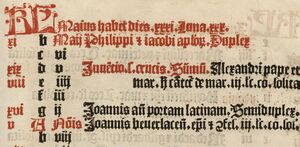 KL Maius habet dies .xxxi. Luna .xxx.
xi b Maij Philippi & iacobi aplorum. Duplex
c
xix d v Inuētio .s. crucis. Sēmid. Alexandri pape et
viii e iiij mar. cōmē de mar. iij. le. co. solita
f iij
xvi g ij Joannis an̄ portam latinam. Semiduplex.
v A Nōis Joannis beuerlacen. epi & cōf. iij. le. co. solita
b viij